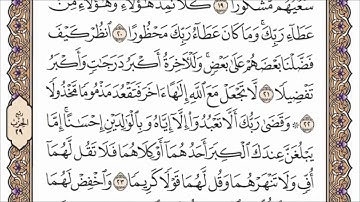 سَعْيُهُم مَّشْكُورًا ١٩ كُلًّا نُّمِدُّ هَٰٓؤُلَآءِ وَهَٰٓؤُلَآءِ مِنْ
عَطَآءِ رَبِّكَ ۚ وَمَا كَانَ عَطَآءُ رَبِّكَ مَحْظُورًا ٢٠ ٱنظُرْ كَيْفَ
فَضَّلْنَا بَعْضَهُمْ عَلَىٰ بَعْضٍ ۚ وَلَلْـَٔاخِرَةُ أَكْبَرُ دَرَجَٰتٍ وَأَكْبَرُ
تَفْضِيلًا ٢١ لَّا تَجْعَلْ مَعَ ٱللَّهِ إِلَٰهًا ءَاخَرَ فَتَقْعُدَ مَذْمُومًا مَّخْذُولًا
٢٢ ۞ وَقَضَىٰ رَبُّكَ أَلَّا تَعْبُدُوٓا۟ إِلَّآ إِيَّاهُ وَبِٱلْوَٰلِدَيْنِ إِحْسَٰنًا ۚ إِمَّا
يَبْلُغَنَّ عِندَكَ ٱلْكِبَرَ أَحَدُهُمَآ أَوْ كِلَاهُمَا فَلَا تَقُل لَّهُمَآ
أُفٍّ وَلَا تَنْهَرْهُمَا وَقُل لَّهُمَا قَوْلًا كَرِيمًا ٢٣ وَٱخْفِضْ لَهُمَا
ربع
الحزب
٢٩